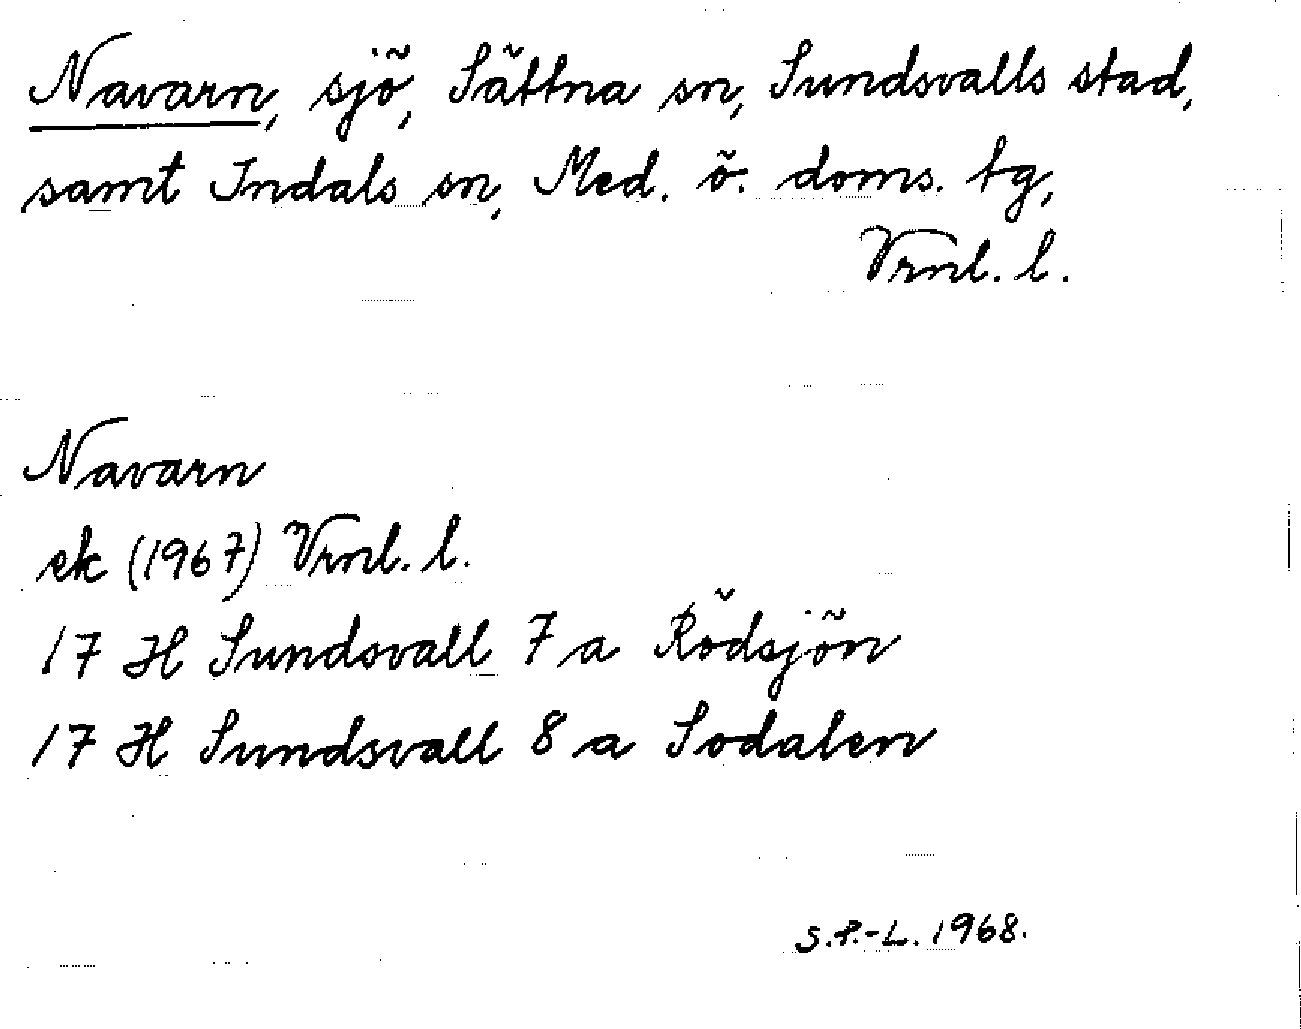 Navarn, sjö, Sättna sn, Sundsvalls stad,
samt Indals sn, Med. ö. doms. tg,
Vrnl. l.
Navarn
ek (1967) Vrnl. l.
17 H Sundsvall 7 a Rödsjön
17 H Sundsvall 8 a Sodalen
S.P.-L. 1968.